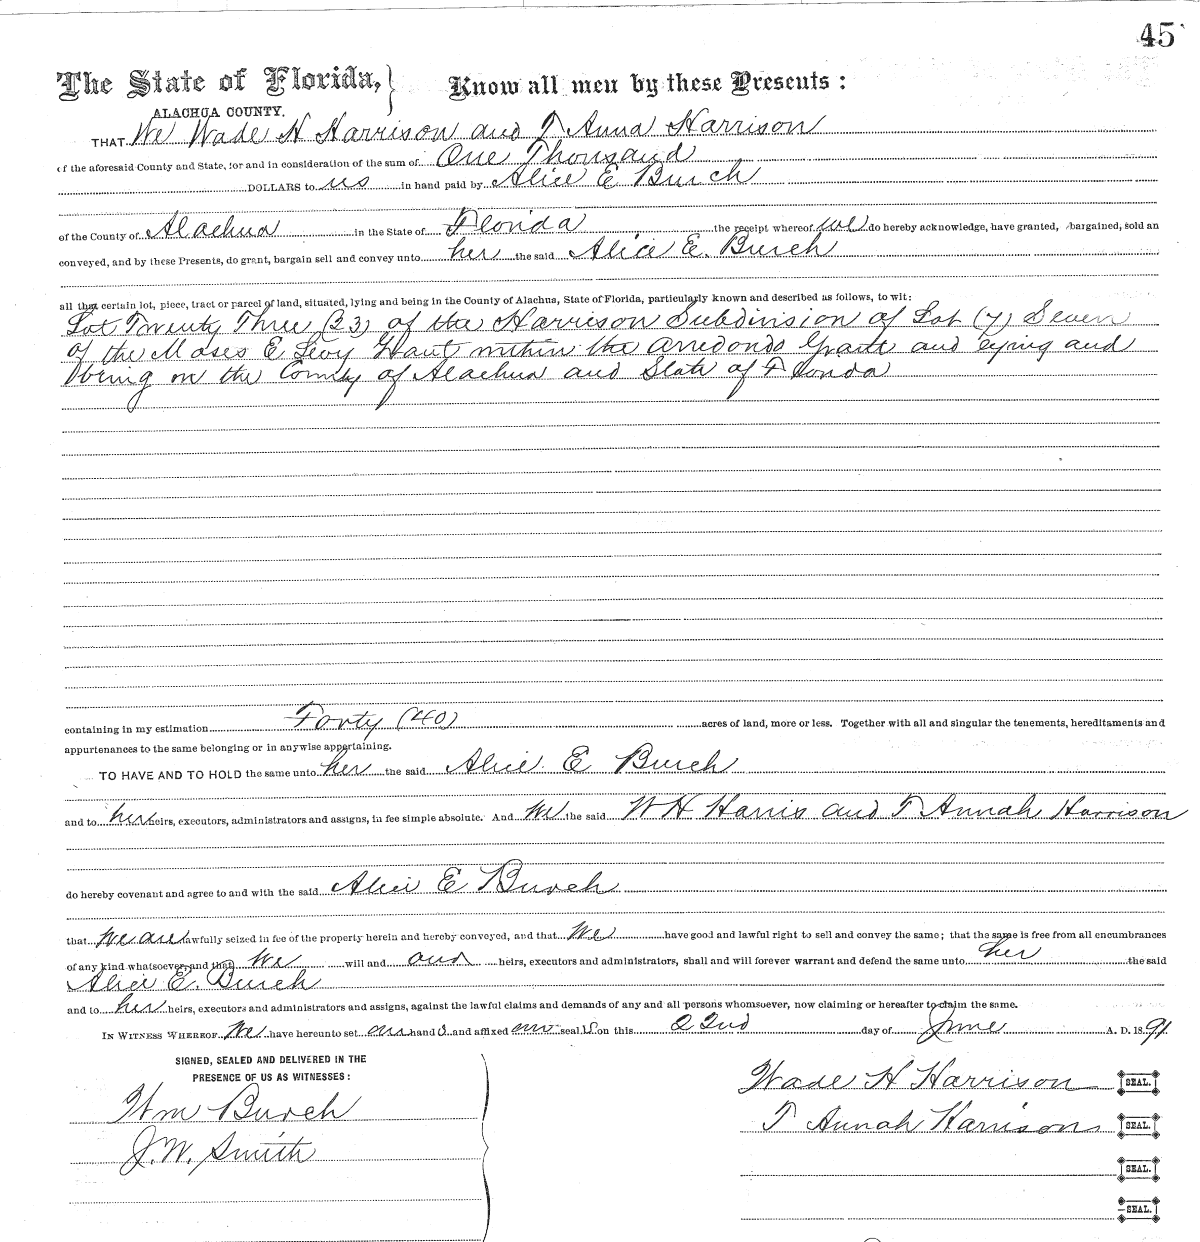 45
The State of Florida, } Know all men by these Presents :
ALACHUA COUNTY.
THAT We Wade H Harrison and T Anna Harrison
of the aforesaid County and State, for and in consideration of the sum of One Thousand
DOLLARS to us in hand paid by Alice E Burch
of the County of Alachua in the State of Florida the receipt whereof we do hereby acknowledge, have granted, bargained, sold an
conveyed, and by these Presents, do grant, bargain sell and convey unto her the said Alice E. Burch
all that certain lot, piece, tract or parcel of land, situated, lying and being in the County of Alachua, State of Florida, particularly known and described as follows, to wit:
Lot Twenty Three (23) of the Harrison Subdivision of Lot (7) Seven
of the Moses E Levy Grant within the Arredondo Grant and lying and
being in the County of Alachua and State of Florida
containing in my estimation Forty (40) acres of land, more or less. Together with all and singular the tenements, hereditaments and
appurtenances to the same belonging or in anywise appertaining.
TO HAVE AND TO HOLD the same unto her the said Alice E Burch
and to her heirs, executors, administrators and assigns, in fee simple absolute. And We the said W H Harris and T Annah Harrison
do hereby covenant and agree to and with the said Alice E Burch
that we are lawfully seized in fee of the property herein and hereby conveyed, and that We have good and lawful right to sell and convey the same; that the same is free from all encumbrances
of any kind whatsoever, and that We will and our heirs, executors and administrators, shall and will forever warrant and defend the same unto her the said
Alice E. Burch
and to her heirs, executors and administrators and assigns, against the lawful claims and demands of any and all persons whomsoever, now claiming or hereafter to claim the same.
IN WITNESS WHEREOF We have hereunto set our hand s and affixed our seal s on this 22nd day of June A. D. 18 91
SIGNED, SEALED AND DELIVERED IN THE
PRESENCE OF US AS WITNESSES :
Wm Burch
J.W. Smith
Wade H Harrison SEAL.
T Annah Harrison SEAL.
SEAL.
SEAL.